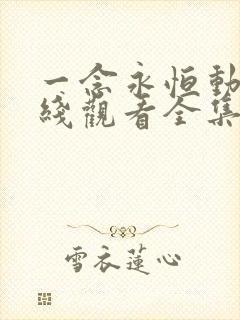 一念永恒動
綫觀看全集
雪衣蓮心